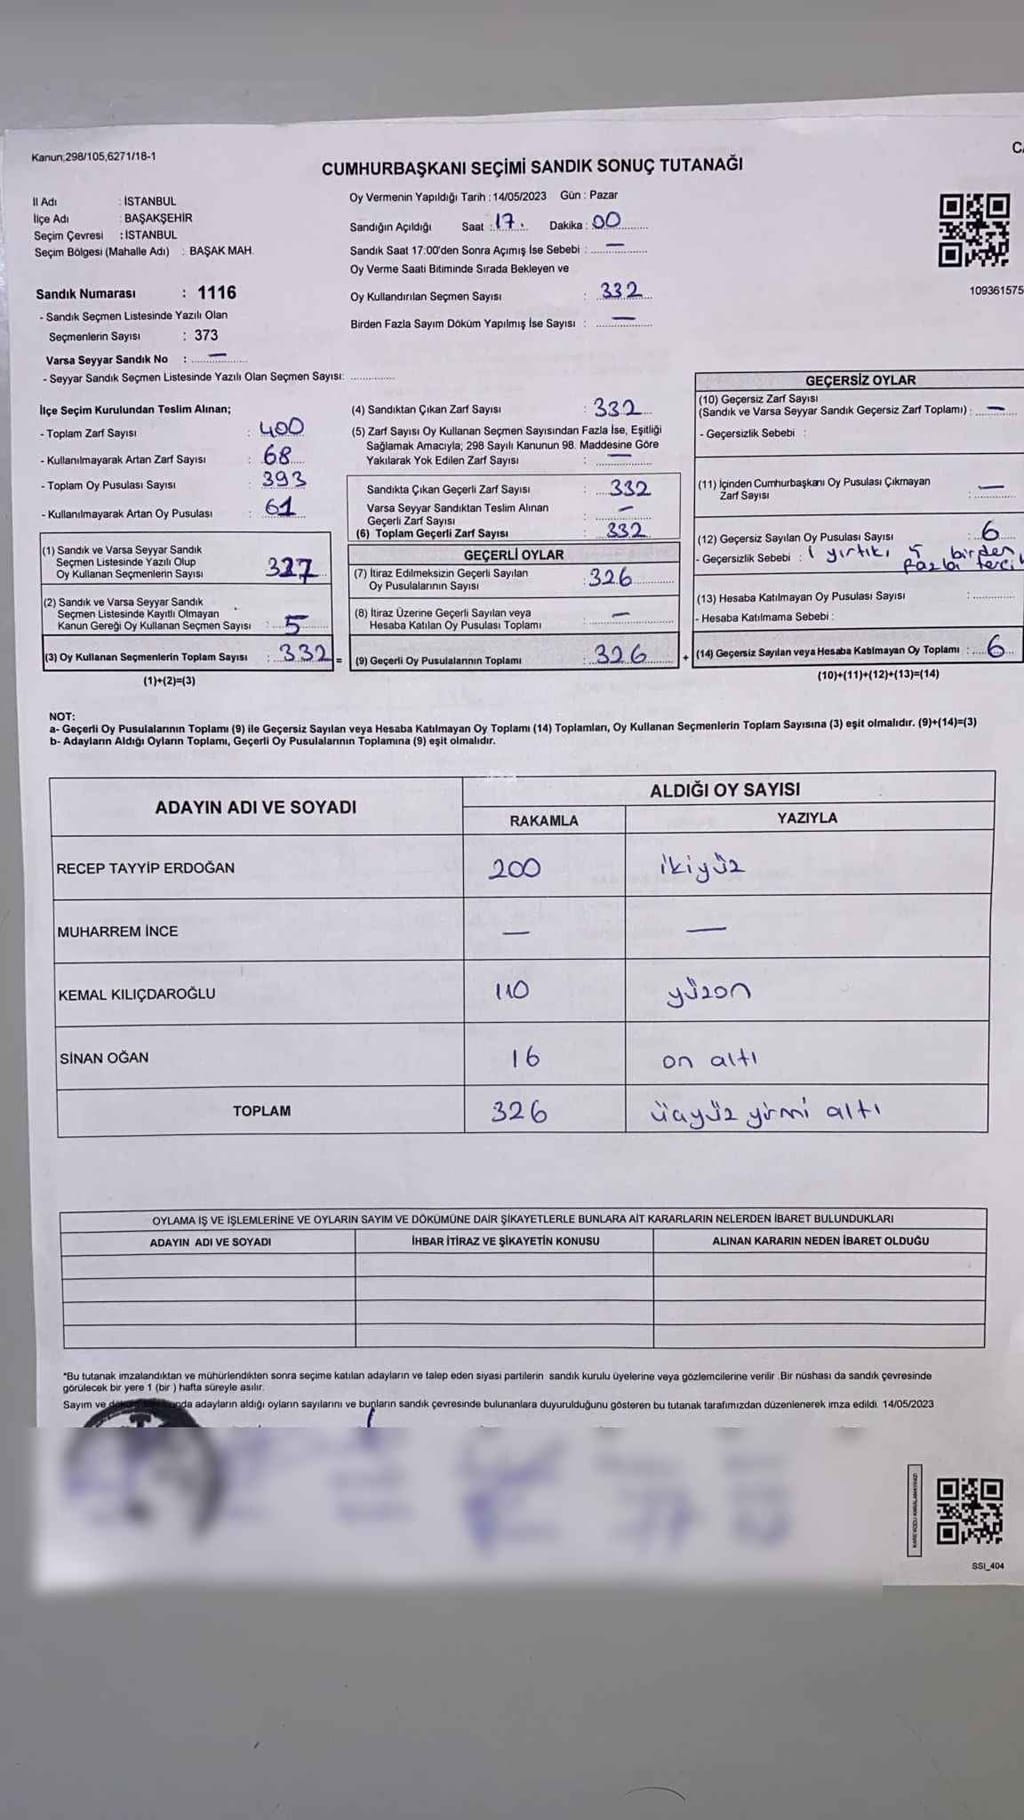 Kanun;298/105,6271/18-1
CUMHURBAŞKANI SEÇİMİ SANDIK SONUÇ TUTANAĞI
İl Adı : İSTANBUL
İlçe Adı : BAŞAKŞEHİR
Seçim Çevresi : İSTANBUL
Seçim Bölgesi (Mahalle Adı) : BAŞAK MAH.
Sandık Numarası : 1116
- Sandık Seçmen Listesinde Yazılı Olan
Seçmenlerin Sayısı : 373
Varsa Seyyar Sandık No : —
- Seyyar Sandık Seçmen Listesinde Yazılı Olan Seçmen Sayısı:
Oy Vermenin Yapıldığı Tarih : 14/05/2023 Gün : Pazar
Sandığın Açıldığı Saat : 17. Dakika : 00
Sandık Saat 17:00'den Sonra Açımış İse Sebebi : —
Oy Verme Saati Bitiminde Sırada Bekleyen ve
Oy Kullandırılan Seçmen Sayısı : 332
Birden Fazla Sayım Döküm Yapılmış İse Sayısı : —
109361575
İlçe Seçim Kurulundan Teslim Alınan;
- Toplam Zarf Sayısı : 400
- Kullanılmayarak Artan Zarf Sayısı : 68
- Toplam Oy Pusulası Sayısı : 393
- Kullanılmayarak Artan Oy Pusulası : 61
(1) Sandık ve Varsa Seyyar Sandık
Seçmen Listesinde Yazılı Olup
Oy Kullanan Seçmenlerin Sayısı 327
(2) Sandık ve Varsa Seyyar Sandık
Seçmen Listesinde Kayıtlı Olmayan
Kanun Gereği Oy Kullanan Seçmen Sayısı : 5
(3) Oy Kullanan Seçmenlerin Toplam Sayısı : 332 =
(1)+(2)=(3)
(4) Sandıktan Çıkan Zarf Sayısı : 332
(5) Zarf Sayısı Oy Kullanan Seçmen Sayısından Fazla İse, Eşitliği
Sağlamak Amacıyla; 298 Sayılı Kanunun 98. Maddesine Göre
Yakılarak Yok Edilen Zarf Sayısı : —
Sandıkta Çıkan Geçerli Zarf Sayısı : 332
Varsa Seyyar Sandıktan Teslim Alınan
Geçerli Zarf Sayısı : —
(6) Toplam Geçerli Zarf Sayısı : 332
GEÇERLİ OYLAR
(7) İtiraz Edilmeksizin Geçerli Sayılan
Oy Pusulalarının Sayısı : 326
(8) İtiraz Üzerine Geçerli Sayılan veya
Hesaba Katılan Oy Pusulası Toplamı : —
(9) Geçerli Oy Pusulalarının Toplamı : 326 +
GEÇERSİZ OYLAR
(10) Geçersiz Zarf Sayısı
(Sandık ve Varsa Seyyar Sandık Geçersiz Zarf Toplamı) : —
- Geçersizlik Sebebi :
(11) İçinden Cumhurbaşkanı Oy Pusulası Çıkmayan
Zarf Sayısı : —
(12) Geçersiz Sayılan Oy Pusulası Sayısı : 6
- Geçersizlik Sebebi : 1 yırtık, 5 birden
fazla terci
(13) Hesaba Katılmayan Oy Pusulası Sayısı :
- Hesaba Katılmama Sebebi :
(14) Geçersiz Sayılan veya Hesaba Katılmayan Oy Toplamı : 6
(10)+(11)+(12)+(13)=(14)
NOT:
a- Geçerli Oy Pusulalarının Toplamı (9) ile Geçersiz Sayılan veya Hesaba Katılmayan Oy Toplamı (14) Toplamları, Oy Kullanan Seçmenlerin Toplam Sayısına (3) eşit olmalıdır. (9)+(14)=(3)
b- Adayların Aldığı Oyların Toplamı, Geçerli Oy Pusulalarının Toplamına (9) eşit olmalıdır.
ADAYIN ADI VE SOYADI
ALDIĞI OY SAYISI
RAKAMLA YAZIYLA
RECEP TAYYİP ERDOĞAN 200 ikiyüz
MUHARREM İNCE — —
KEMAL KILIÇDAROĞLU 110 yüzon
SİNAN OĞAN 16 on altı
TOPLAM 326 üçyüz yirmi altı
OYLAMA İŞ VE İŞLEMLERİNE VE OYLARIN SAYIM VE DÖKÜMÜNE DAİR ŞİKAYETLERLE BUNLARA AİT KARARLARIN NELERDEN İBARET BULUNDUKLARI
ADAYIN ADI VE SOYADI İHBAR İTİRAZ VE ŞİKAYETİN KONUSU ALINAN KARARIN NEDEN İBARET OLDUĞU
*Bu tutanak imzalandıktan ve mühürlendikten sonra seçime katılan adayların ve talep eden siyasi partilerin sandık kurulu üyelerine veya gözlemcilerine verilir .Bir nüshası da sandık çevresinde
görülecek bir yere 1 (bir ) hafta süreyle asılır.
Sayım ve adayların aldığı oyların sayılarını ve bunların sandık çevresinde bulunanlara duyurulduğunu gösteren bu tutanak tarafımızdan düzenlenerek imza edildi. 14/05/2023
SSİ_404